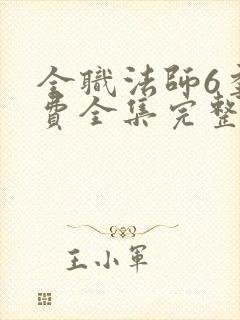 全職法師6季
費全集完整
王小軍